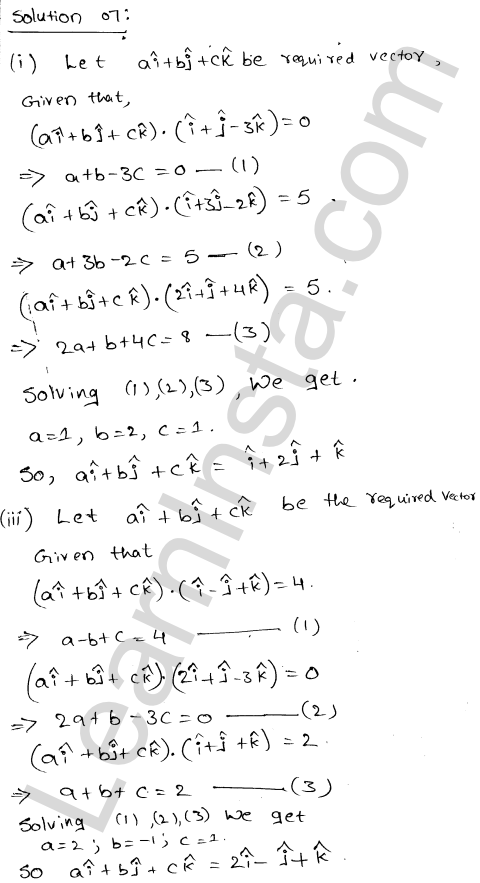 Solution 07:
(i) Let aî+bĵ+ck̂ be required vector,
Given that,
(aî+bĵ+ck̂)·(î+ĵ-3k̂)=0
⇒ a+b-3c=0 — (1)
(aî+bĵ+ck̂)·(î+3ĵ-2k̂)=5.
⇒ a+3b-2c=5 — (2)
(aî+bĵ+ck̂)·(2î+ĵ+4k̂)=5.
⇒ 2a+b+4c=8 — (3)
Solving (1),(2),(3), We get.
a=1, b=2, c=1.
So, aî+bĵ+ck̂= î+2ĵ+k̂
(iii) Let aî+bĵ+ck̂ be the required vector
Given that
(aî+bĵ+ck̂)·(î-ĵ+k̂)=4.
⇒ a-b+c=4 — (1)
(aî+bĵ+ck̂)·(2î+ĵ-3k̂)=0
⇒ 2a+b-3c=0 — (2)
(aî+bĵ+ck̂)·(î+ĵ+k̂)=2
⇒ a+b+c=2 — (3)
Solving (1),(2),(3) We get
a=2; b=-1; c=1.
So aî+bĵ+ck̂=2î-ĵ+k̂.
LearnInsta.com